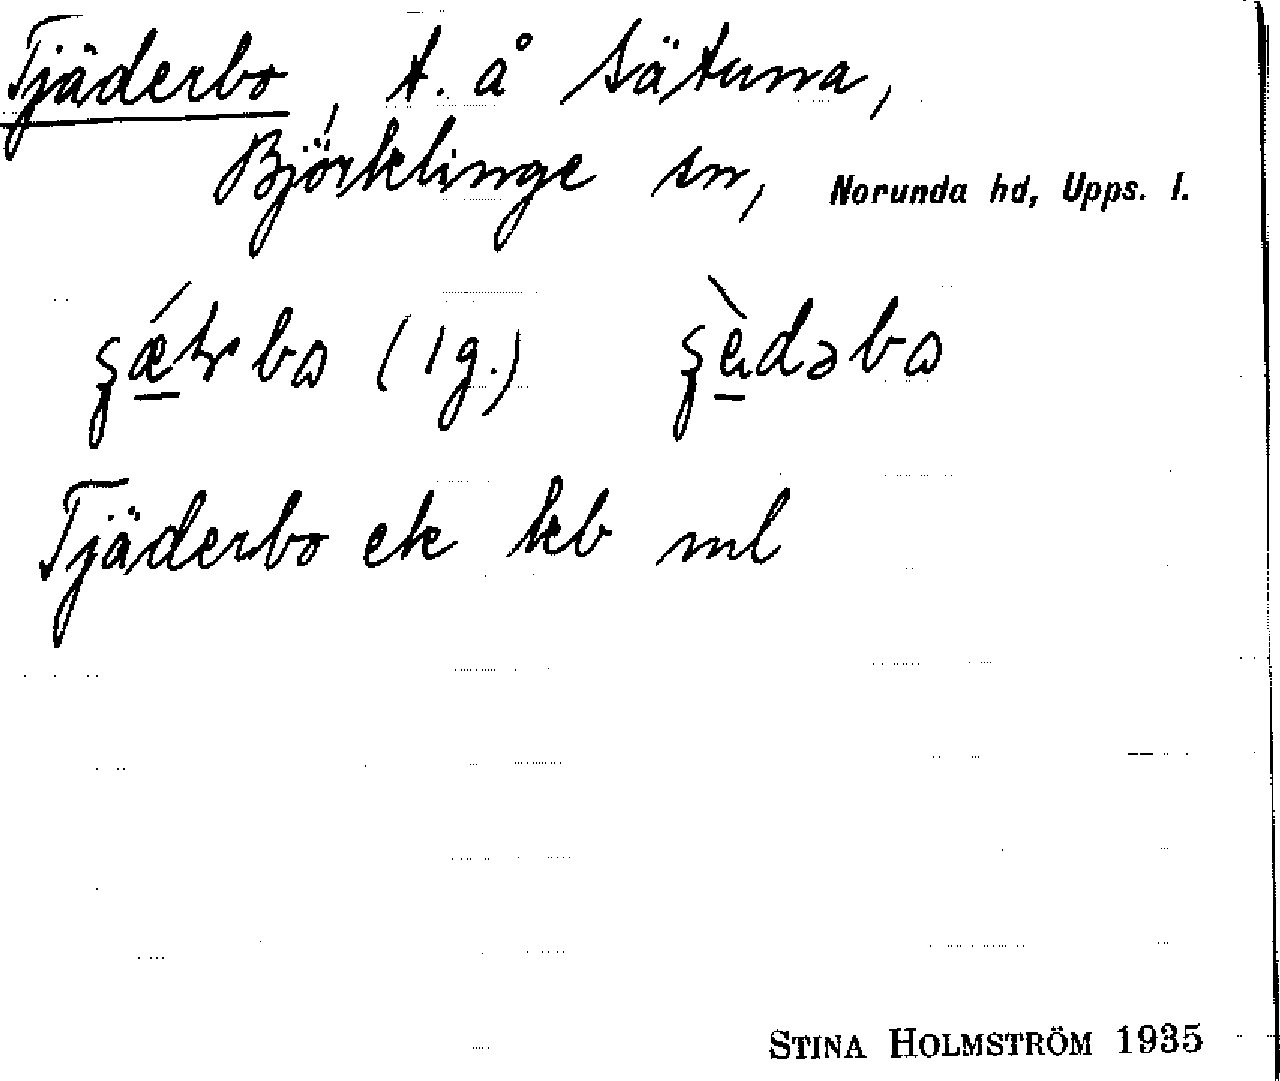 Tjäderbo, t. å Sätuna,
Björklinge sn, Norunda hd, Upps. l.
(1g.)
Tjäderbo ek kb ml
STINA HOLMSTRÖM 1935